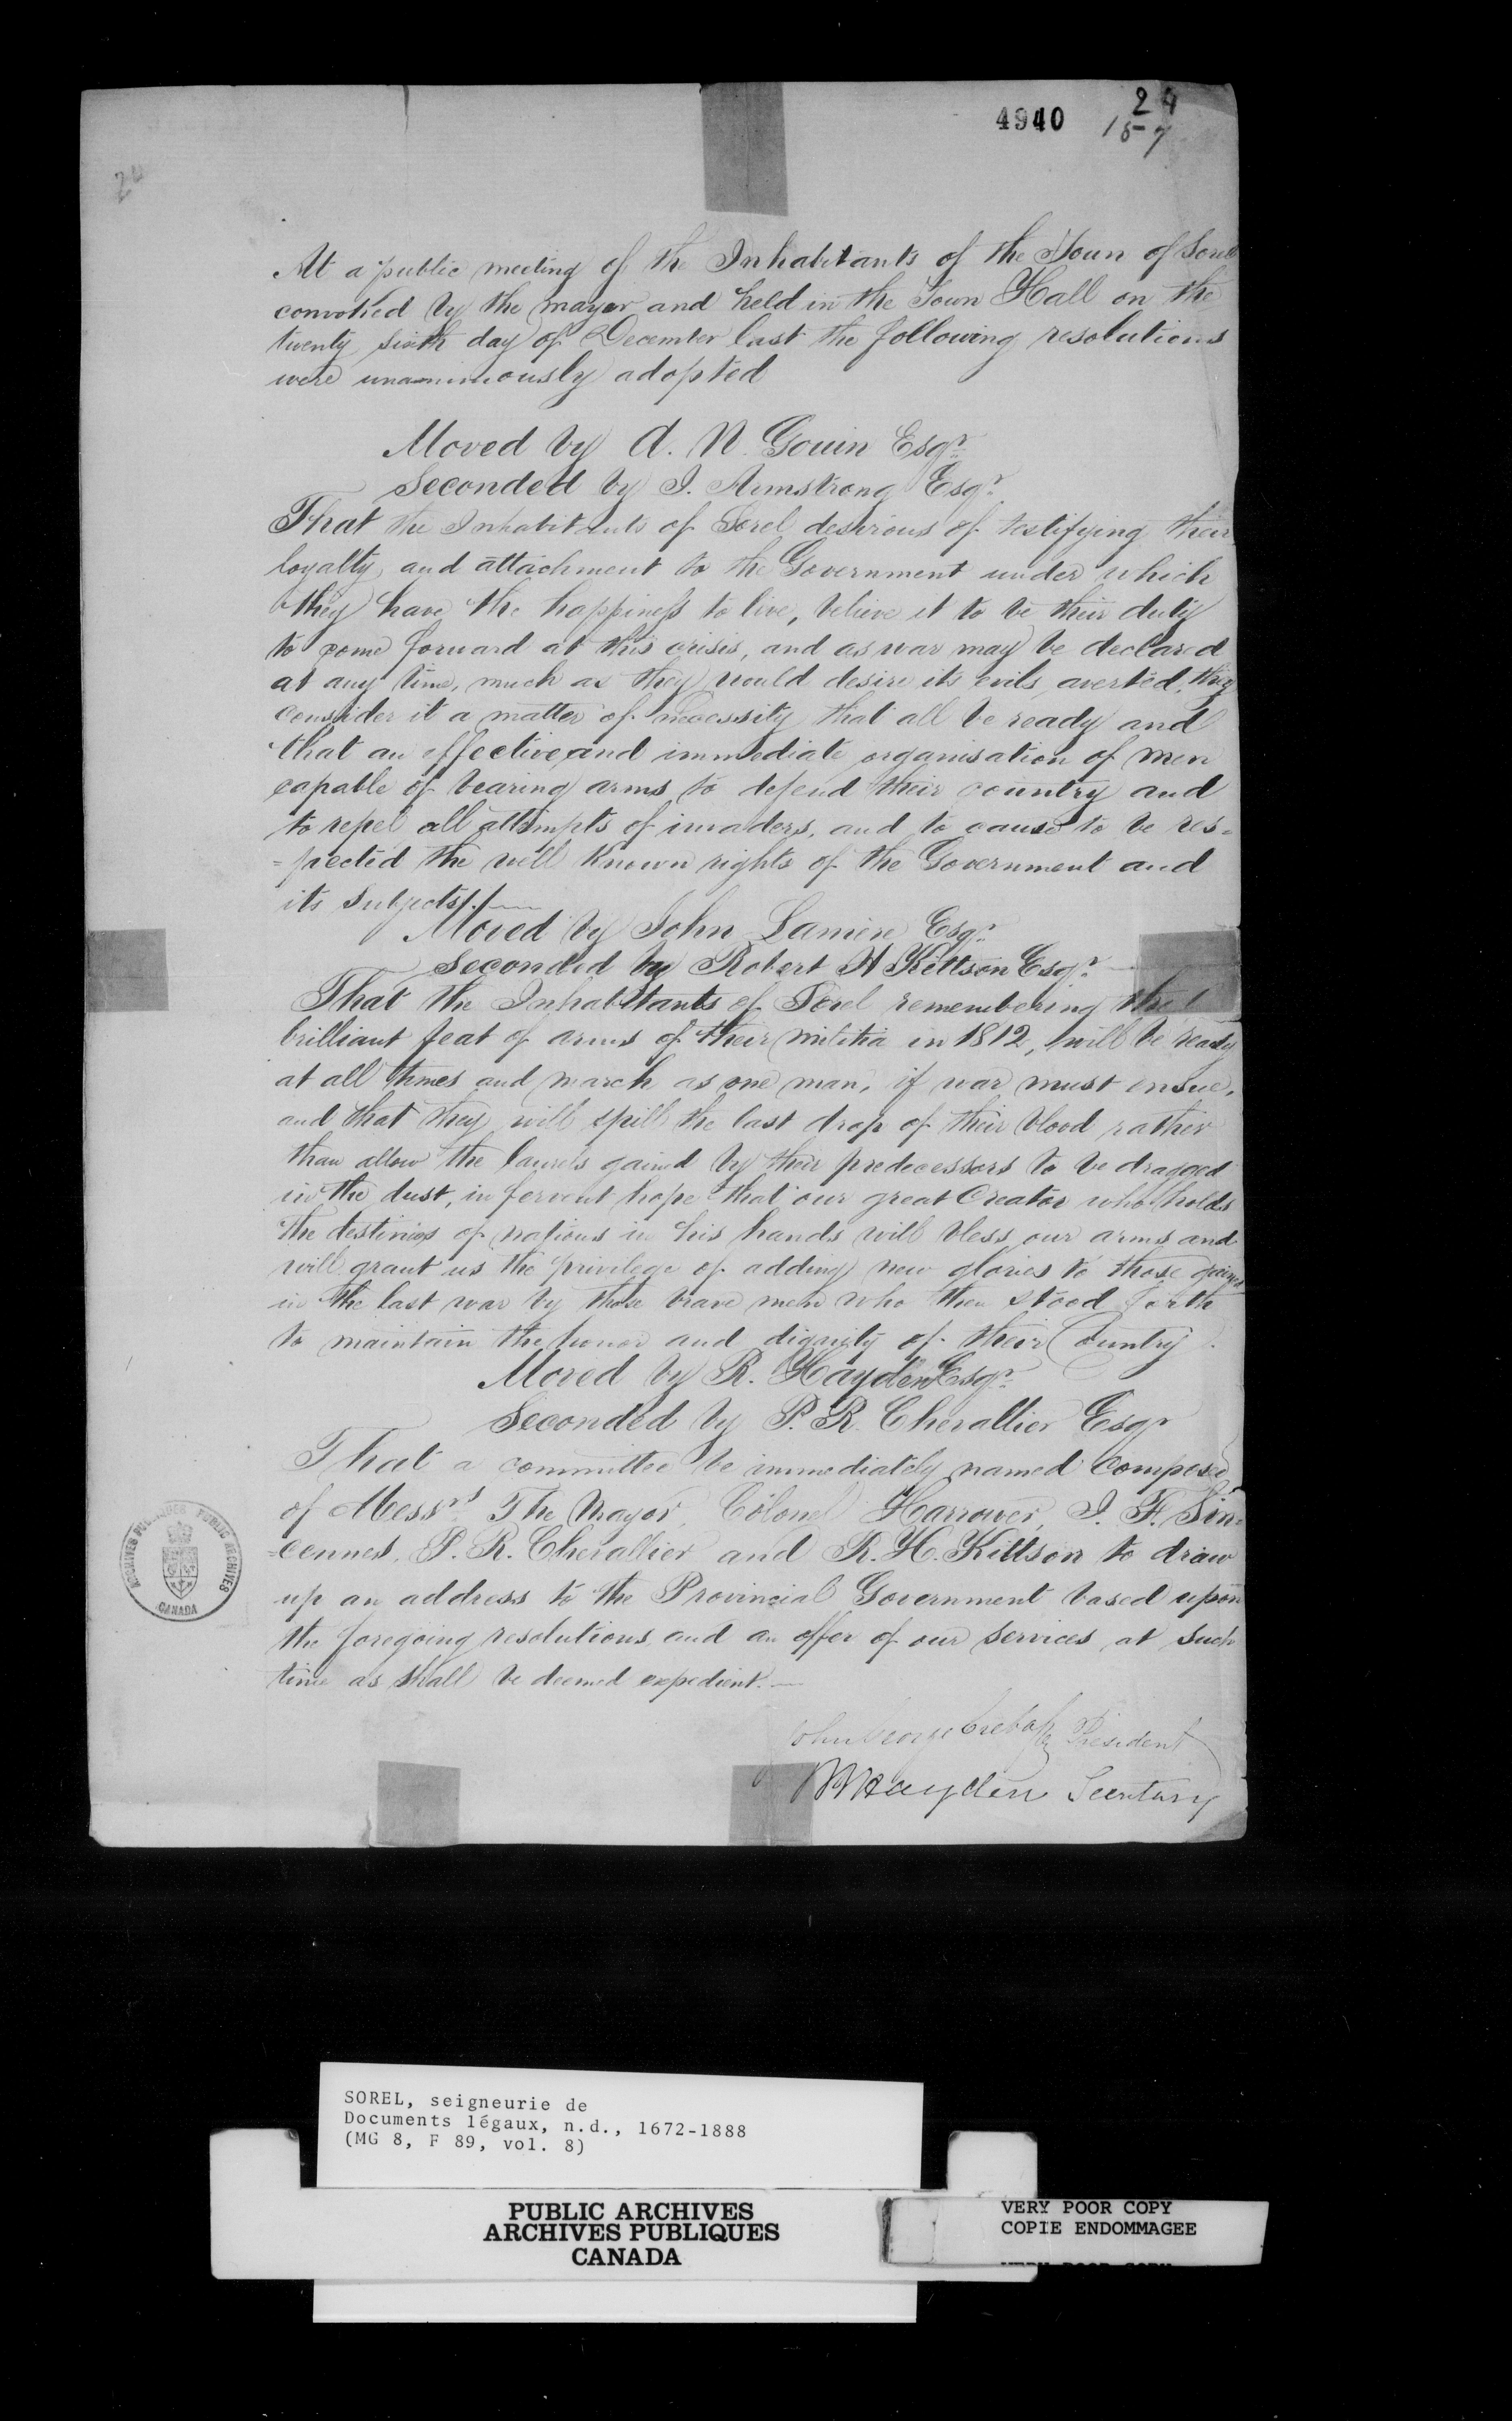 4940
24
157
24
At a public meeting of the Inhabitants of the Town of Sorel
convoked by the mayor and held in the Town Hall on the
twenty sixth day of December last the following resolutions
were unanimously adopted
Moved by A. N. Gouin Esqr.
Seconded by J. Armstrong Esqr.
That the Inhabitants of Sorel desirous of testifying their
loyalty and attachment to the Government under which
they have the happiness to live, believe it to be their duty
to come forward at this crisis, and as war may be declared
at any time, much as they would desire its evils averted, they
consider it a matter of necessity that all be ready and
that an effective and immediate organisation of men
capable of bearing arms to defend their country and
to repel all attempts of invaders, and to cause to be res=
=pected the well known rights of the Government and
its subjects
Moved by John Esqr.
Seconded by Robert H Kittson Esqr.
That the Inhabitants of Sorel remembering the
brilliant feat of arms of their militia in 1812, will be ready
at all times and march as one man, if war must ensue,
and that they will spill the last drop of their blood rather
than allow the laurels gained by their predecessors to be dragged
in the dust, in fervent hope that our great Creator who holds
the destinies of nations in his hands will bless our arms and
will grant us the privilege of adding new glories to those gained
in the last war by those brave men who then stood forth
to maintain the honor and dignity of their Country.
Moved by R. Hayden Esqr.
Seconded by P. R. Chevallier Esqr
That a committee be immediately named composed
of Messrs The Mayor, Colonel Harrower, J. F. Sin=
=cennes, P. R. Chevallier and R. H. Kittson to draw
up an address to the Provincial Government based upon
the foregoing resolutions and an offer of our services at such
time as shall be deemed expedient.
John George Crebassa President
Hayden Secretary
ARCHIVES PUBLIQUES PUBLIC ARCHIVES
CANADA
SOREL, seigneurie de
Documents légaux, n.d., 1672-1888
(MG 8, F 89, vol. 8)
PUBLIC ARCHIVES
ARCHIVES PUBLIQUES
CANADA
VERY POOR COPY
COPIE ENDOMMAGEE
VERY POOR COPY